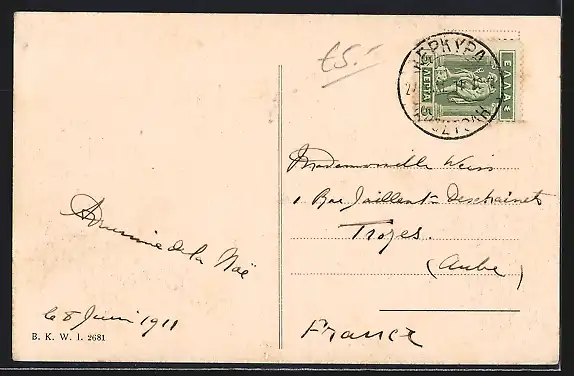 £5.-
ΚΕΡΚΥΡΑ
ΕΛΛΑΣ
5 ΛΕΠΤΑ 5
Mademoiselle Weiss
1 Rue Jaillant-Deschainets
Troyes.
(Aube)
France
de la Noë
le 8 Juin 1911
B. K. W. I. 2681